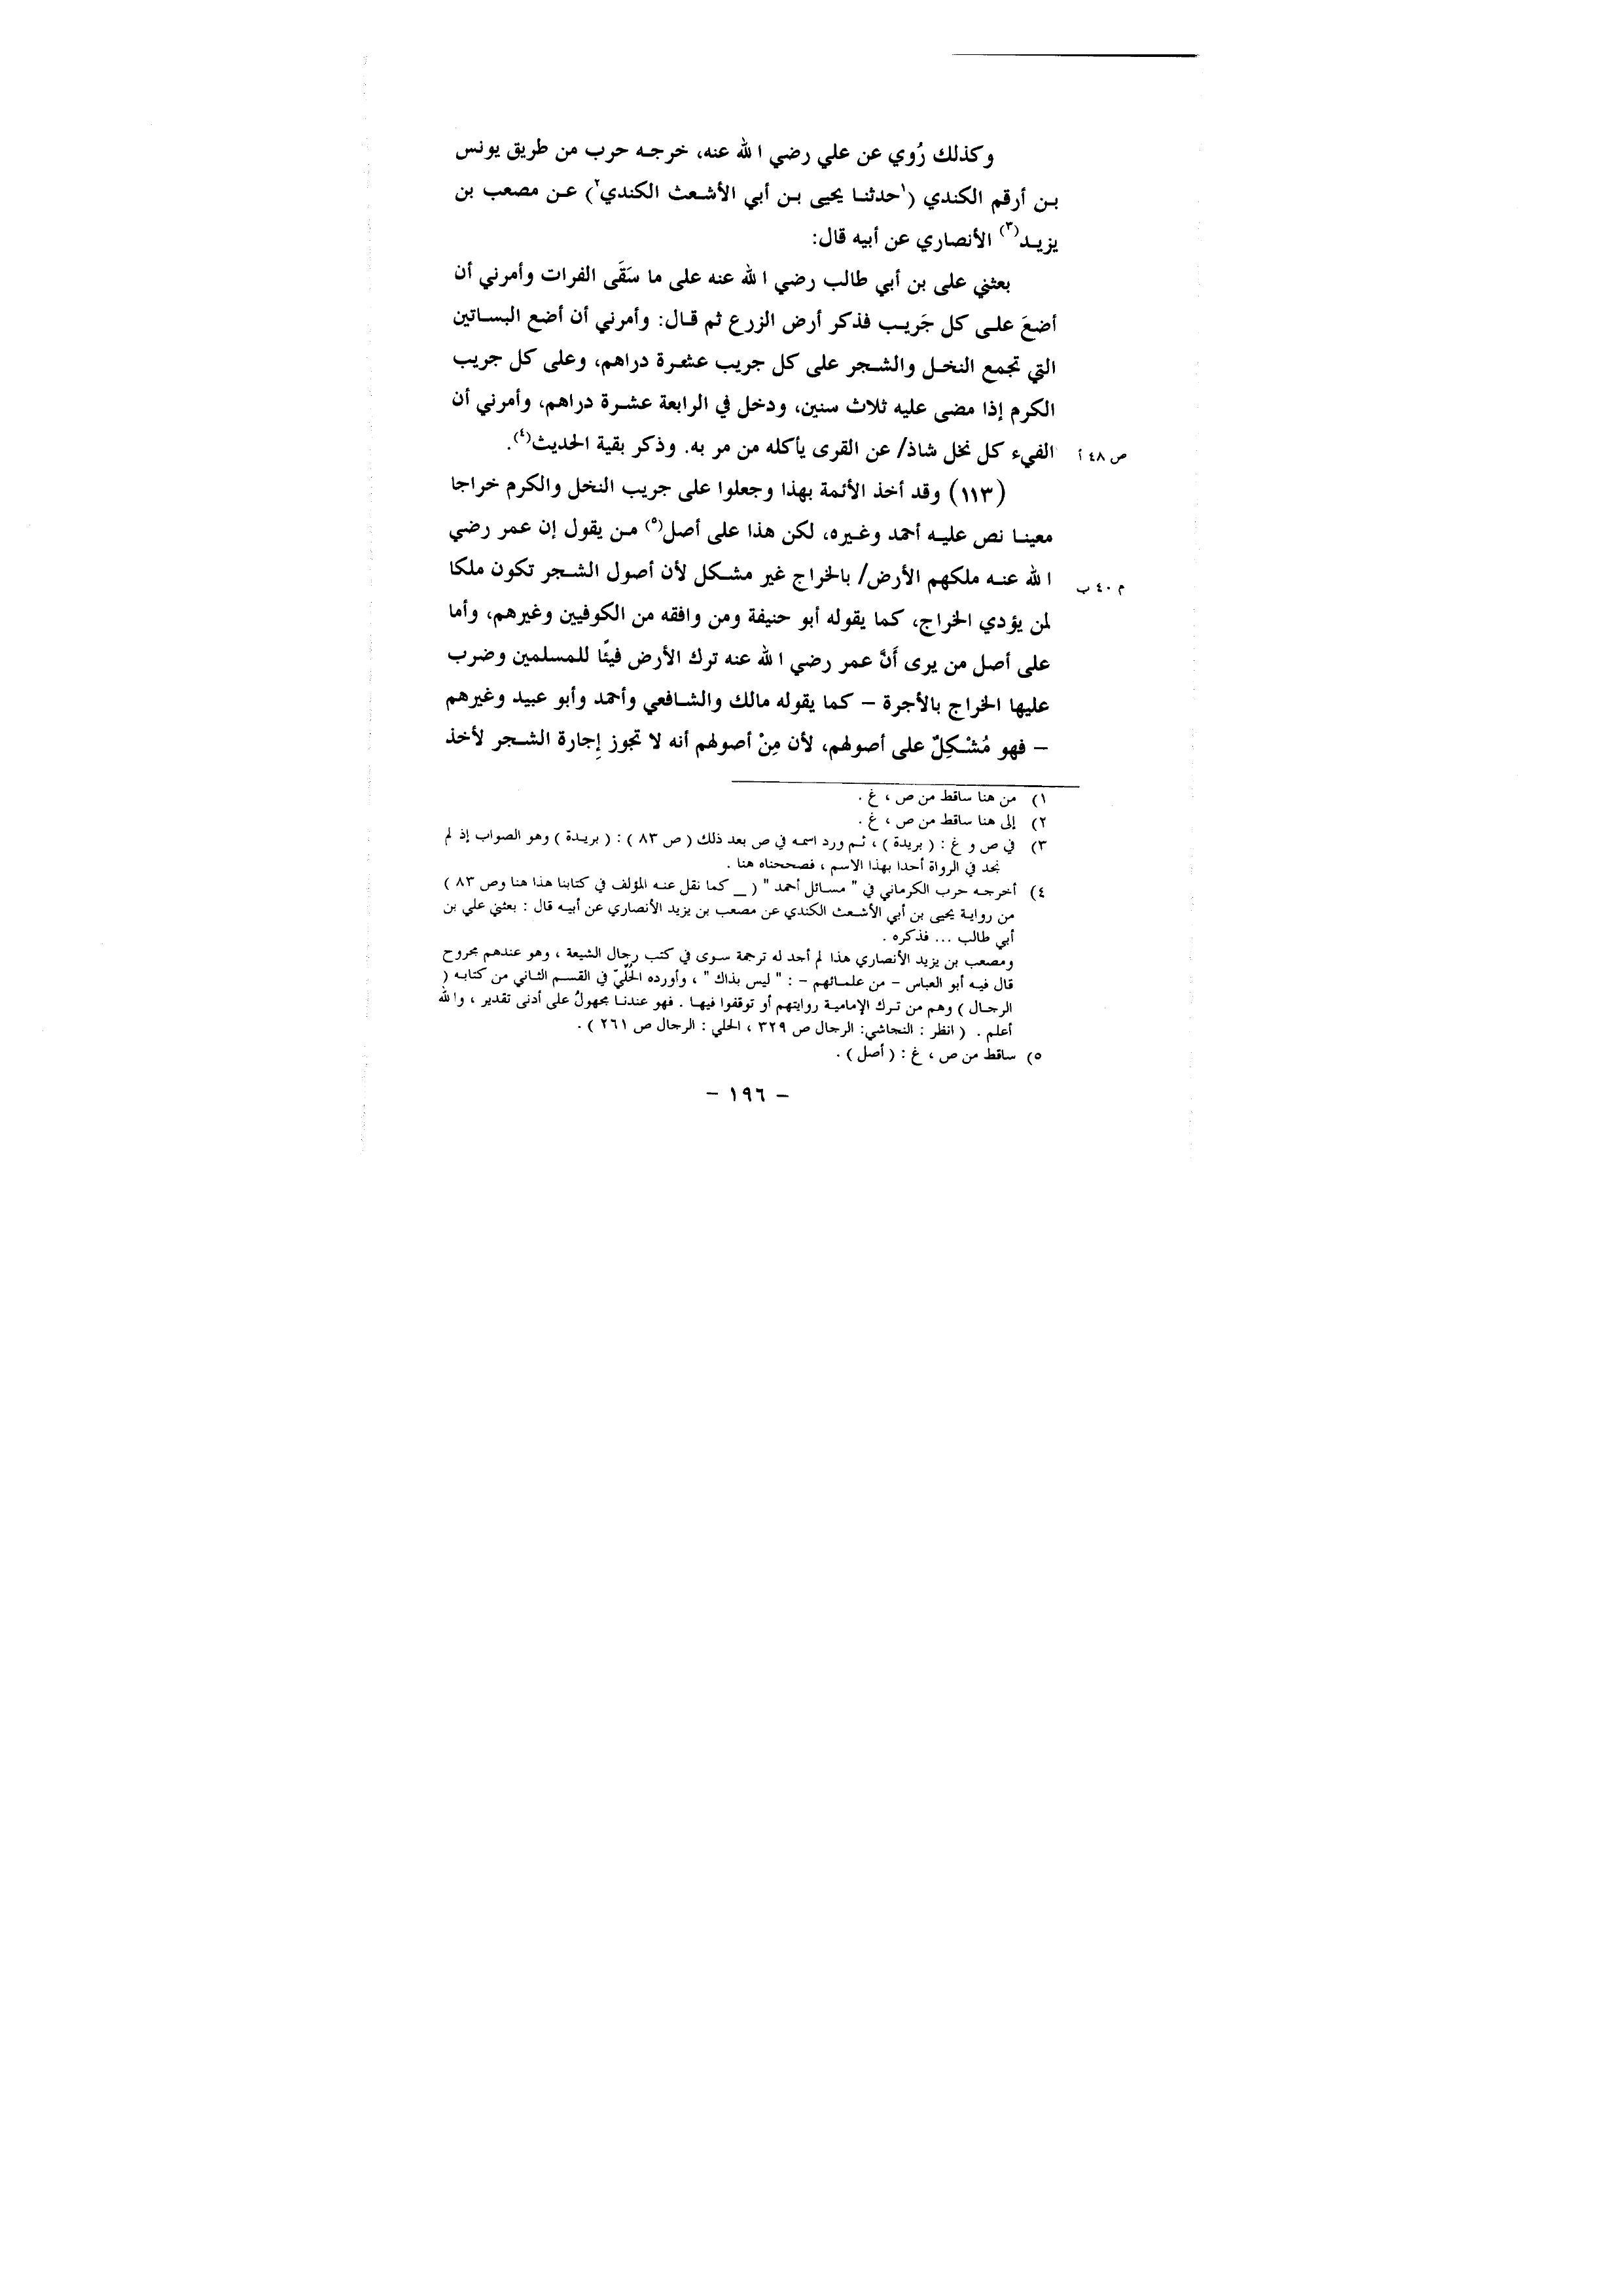 وكذلك رُوي عن علي رضي الله عنه، خرجه حرب من طريق يونس
بن أرقم الكندي (١حدثنا يحيى بن أبي الأشعث الكندي٢) عن مصعب بن
يزيد(٣) الأنصاري عن أبيه قال:
بعثني على بن أبي طالب رضي الله عنه على ما سَقَى الفرات وأمرني أن
أضعَ على كل جَريب فذكر أرض الزرع ثم قال: وأمرني أن أضع البساتين
التي تجمع النخل والشجر على كل جريب عشرة دراهم، وعلى كل جريب
الكرم إذا مضى عليه ثلاث سنين، ودخل في الرابعة عشرة دراهم، وأمرني أن
ص ٤٨ أ الفيء كل نخل شاذ/ عن القرى يأكله من مر به. وذكر بقية الحديث(٤).
(١١٣) وقد أخذ الأئمة بهذا وجعلوا على جريب النخل والكرم خراجا
معينا نص عليه أحمد وغيره، لكن هذا على أصل(٥) من يقول إن عمر رضي
م ٤٠ ب الله عنه ملكهم الأرض/ بالخراج غير مشكل لأن أصول الشجر تكون ملكا
لمن يؤدي الخراج، كما يقوله أبو حنيفة ومن وافقه من الكوفيين وغيرهم، وأما
على أصل من يرى أَنَّ عمر رضي الله عنه ترك الأرض فيئًا للمسلمين وضرب
عليها الخراج بالأجرة – كما يقوله مالك والشافعي وأحمد وأبو عبيد وغيرهم
– فهو مُشْكِلٌ على أصولهم، لأن مِنْ أصولهم أنه لا تجوز إِجارة الشجر لأخذ
١) من هنا ساقط من ص ، غ .
٢) إلى هنا ساقط من ص ، غ .
٣) في ص و غ : ( بريدة ) ، ثم ورد اسمه في ص بعد ذلك ( ص ٨٣ ) : ( بريدة ) وهو الصواب إذ لم
نجد في الرواة أحدا بهذا الاسم ، فصححناه هنا .
٤) أخرجه حرب الكرماني في " مسائل أحمد " ( _ كما نقل عنه المؤلف في كتابنا هذا هنا وص ٨٣ )
من رواية يحيى بن أبي الأشعث الكندي عن مصعب بن يزيد الأنصاري عن أبيه قال : بعثني علي بن
أبي طالب ... فذكره .
ومصعب بن يزيد الأنصاري هذا لم أجد له ترجمة سوى في كتب رجال الشيعة ، وهو عندهم مجروح
قال فيه أبو العباس – من علمائهم – : " ليس بذاك " ، وأورده الحُلّيّ في القسم الثاني من كتابه (
الرجال ) وهم من ترك الإمامية روايتهم أو توقفوا فيها . فهو عندنا مجهولُ على أدنى تقدير ، والله
أعلم . ( انظر : النجاشي: الرجال ص ٣٢٩ ، الحلي : الرجال ص ٢٦١ ) .
٥) ساقط من ص ، غ : ( أصل ) .
– ١٩٦ –